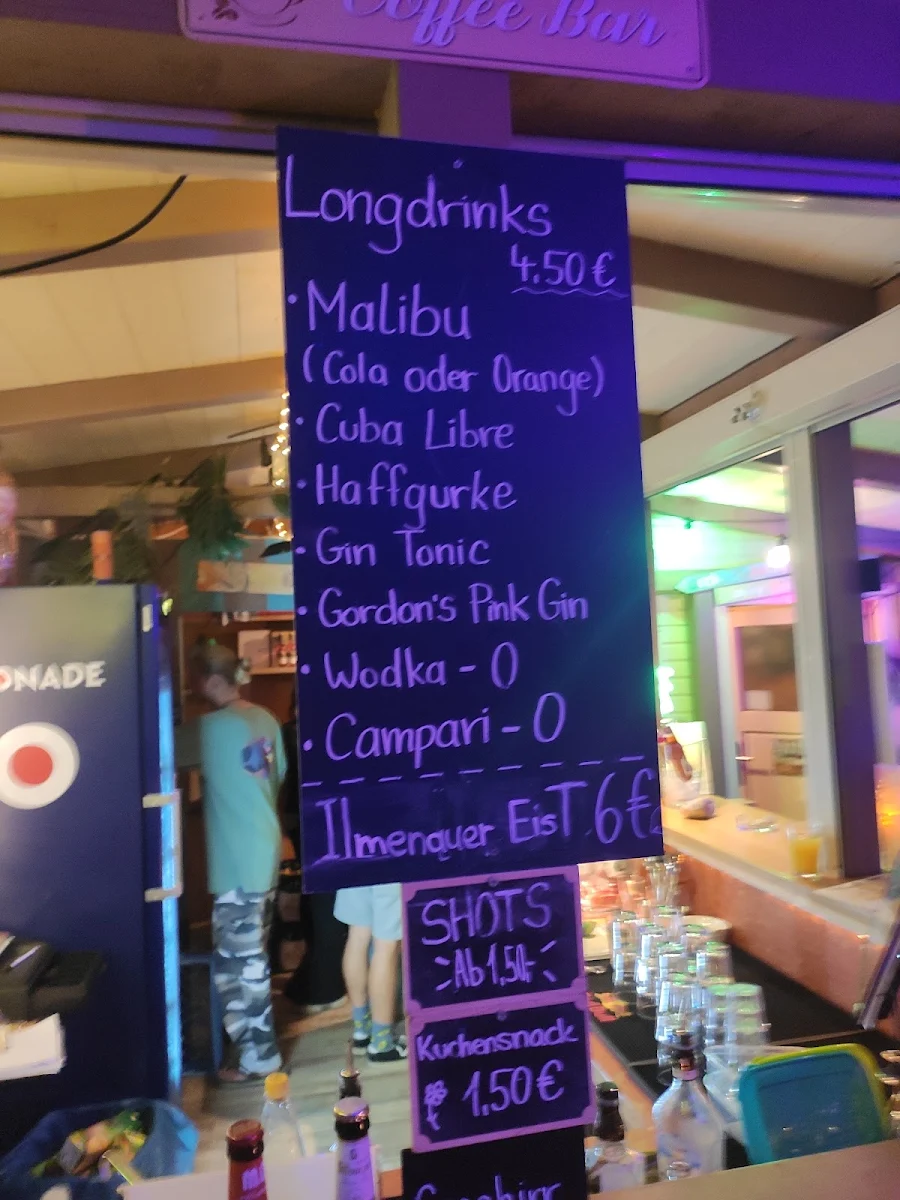 Coffee Bar
Longdrinks
4.50 €
• Malibu
(Cola oder Orange)
• Cuba Libre
• Haffgurke
• Gin Tonic
• Gordon's Pink Gin
• Wodka - O
• Campari - O
Ilmenauer EisT 6€
ONADE
SHOTS
Ab 1,50,-
Kuchensnack
1.50€